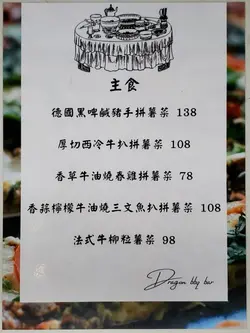 主食
德國黑啤鹹豬手拼薯菜 138
厚切西冷牛扒拼薯菜 108
香草牛油燒春雞拼薯菜 78
香蒜檸檬牛油燒三文魚扒拼薯菜 108
法式牛柳粒薯菜 98
Dragon bbq bar